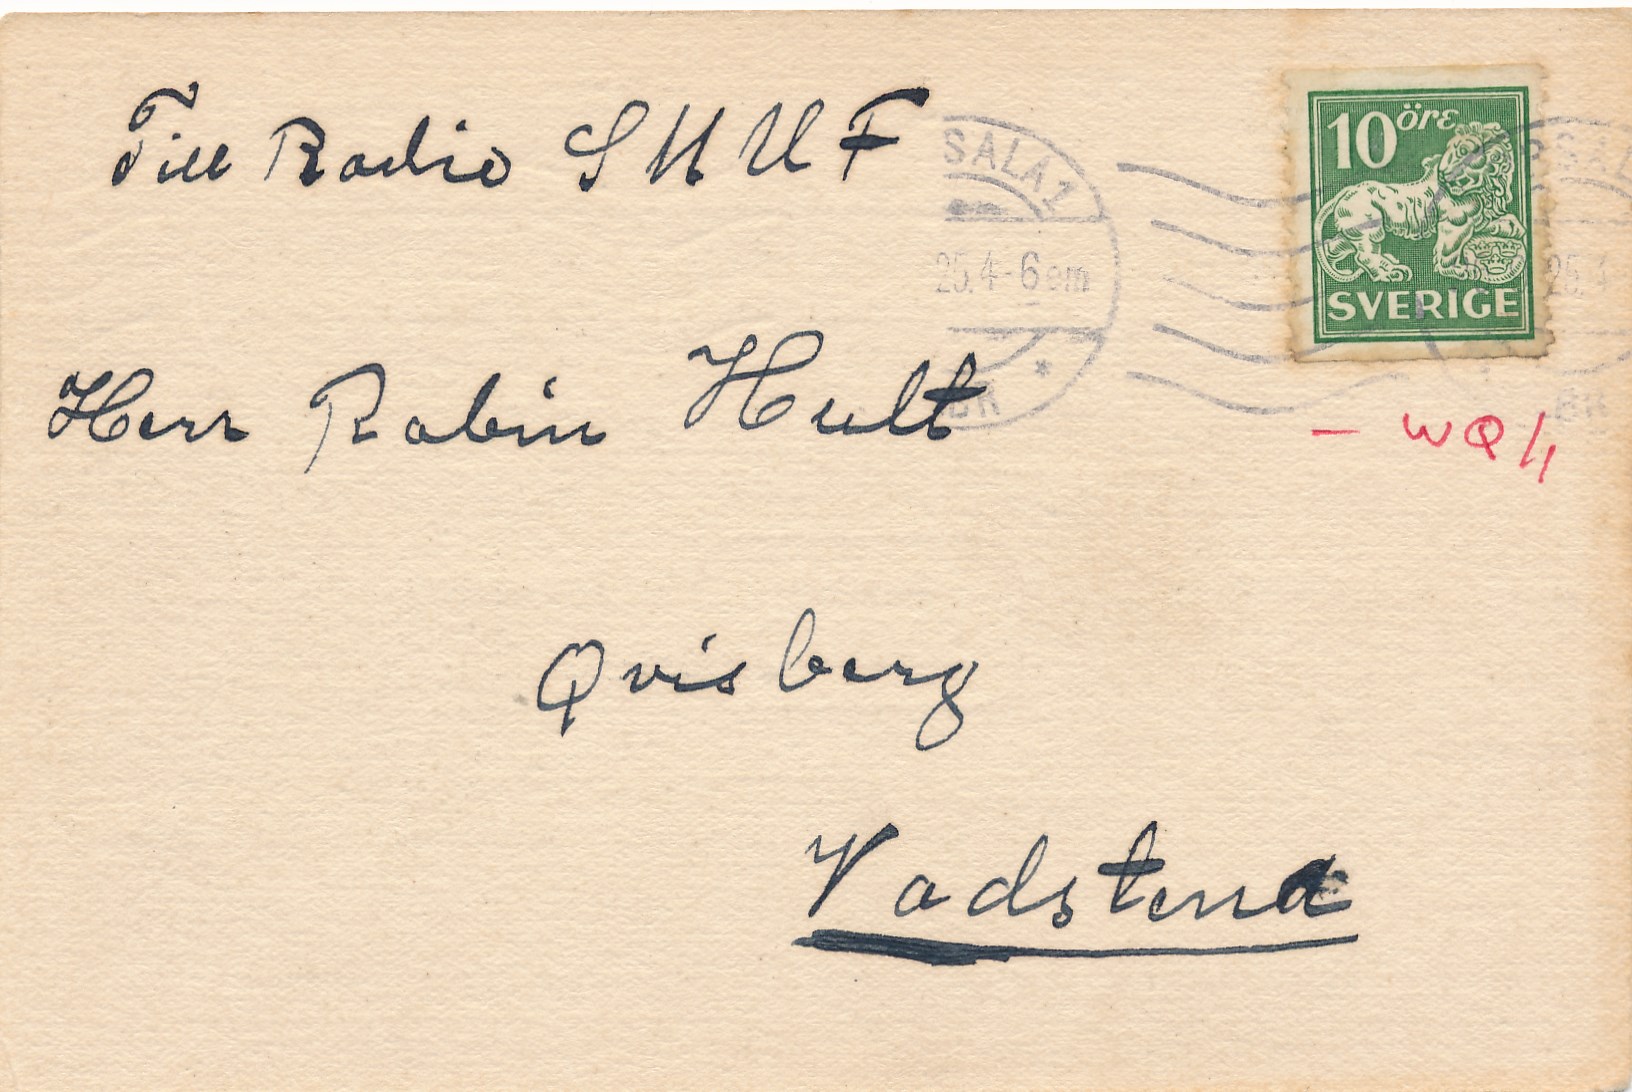 Till Radio SMUF
SALA 1
25.4-6 em
BR
10 öre
SVERIGE
25.4
BR
Herr Robin Hult
- WQ //
Qvisberg
Vadstena